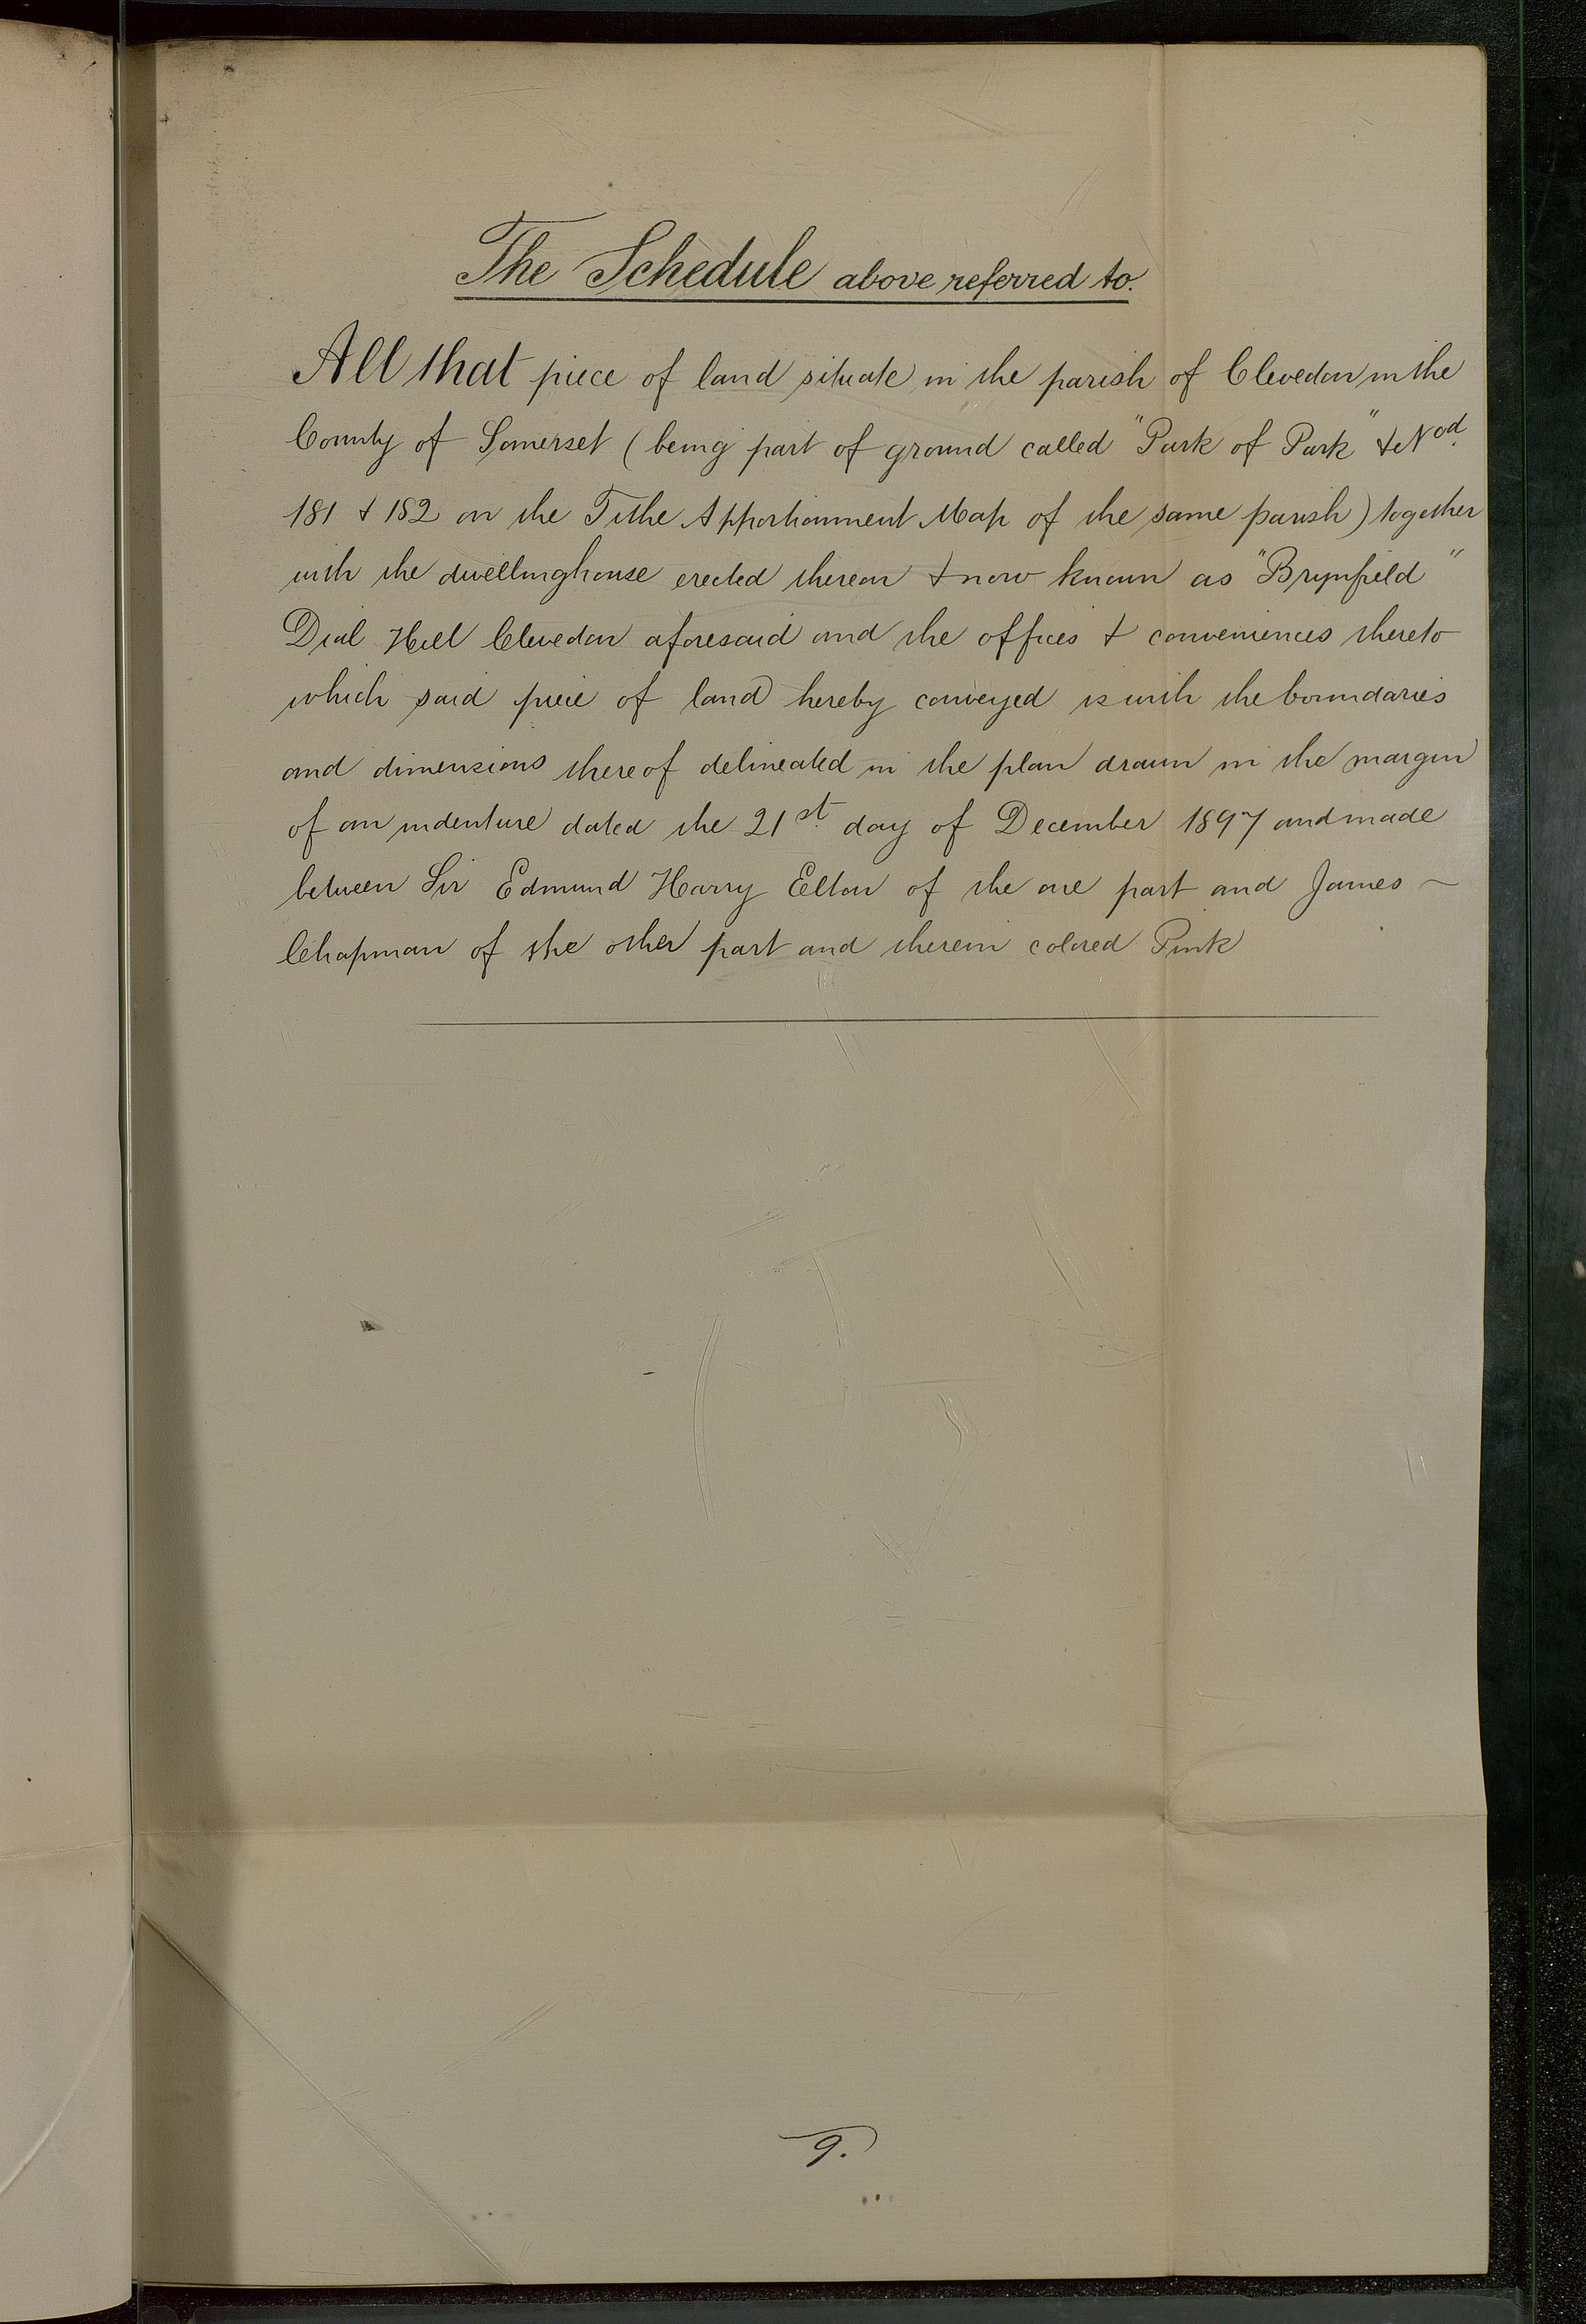 The Schedule above referred to.
All that piece of land situate in the parish of Clevedon in the
County of Somerset (being part of ground called "Park of Park" & Nod.
181 & 182 on the Tithe Apportionment Map of the same parish) together
with the dwellinghouse erected thereon & now known as "Brynfield"
Dial Hill Clevedon aforesaid and the offices & conveniences thereto
which said piece of land hereby conveyed is with the boundaries
and dimensions thereof delineated in the plan drawn in the margin
of an indenture dated the 21st. day of December 1897 and made
between Sir Edmund Harry Elton of the one part and James ~
Chapman of the other part and therein colored Pink
9.